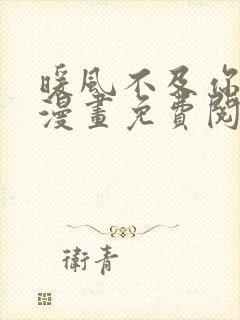 暖風不及你
漫畫免費閱
衛青